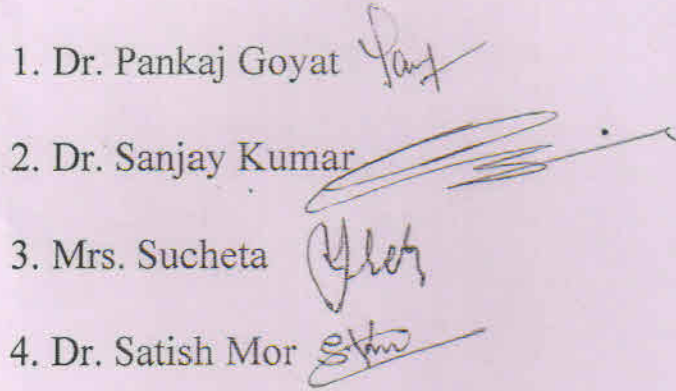 1. Dr. Pankaj Goyat
2. Dr. Sanjay Kumar
3. Mrs. Sucheta
4. Dr. Satish Mor